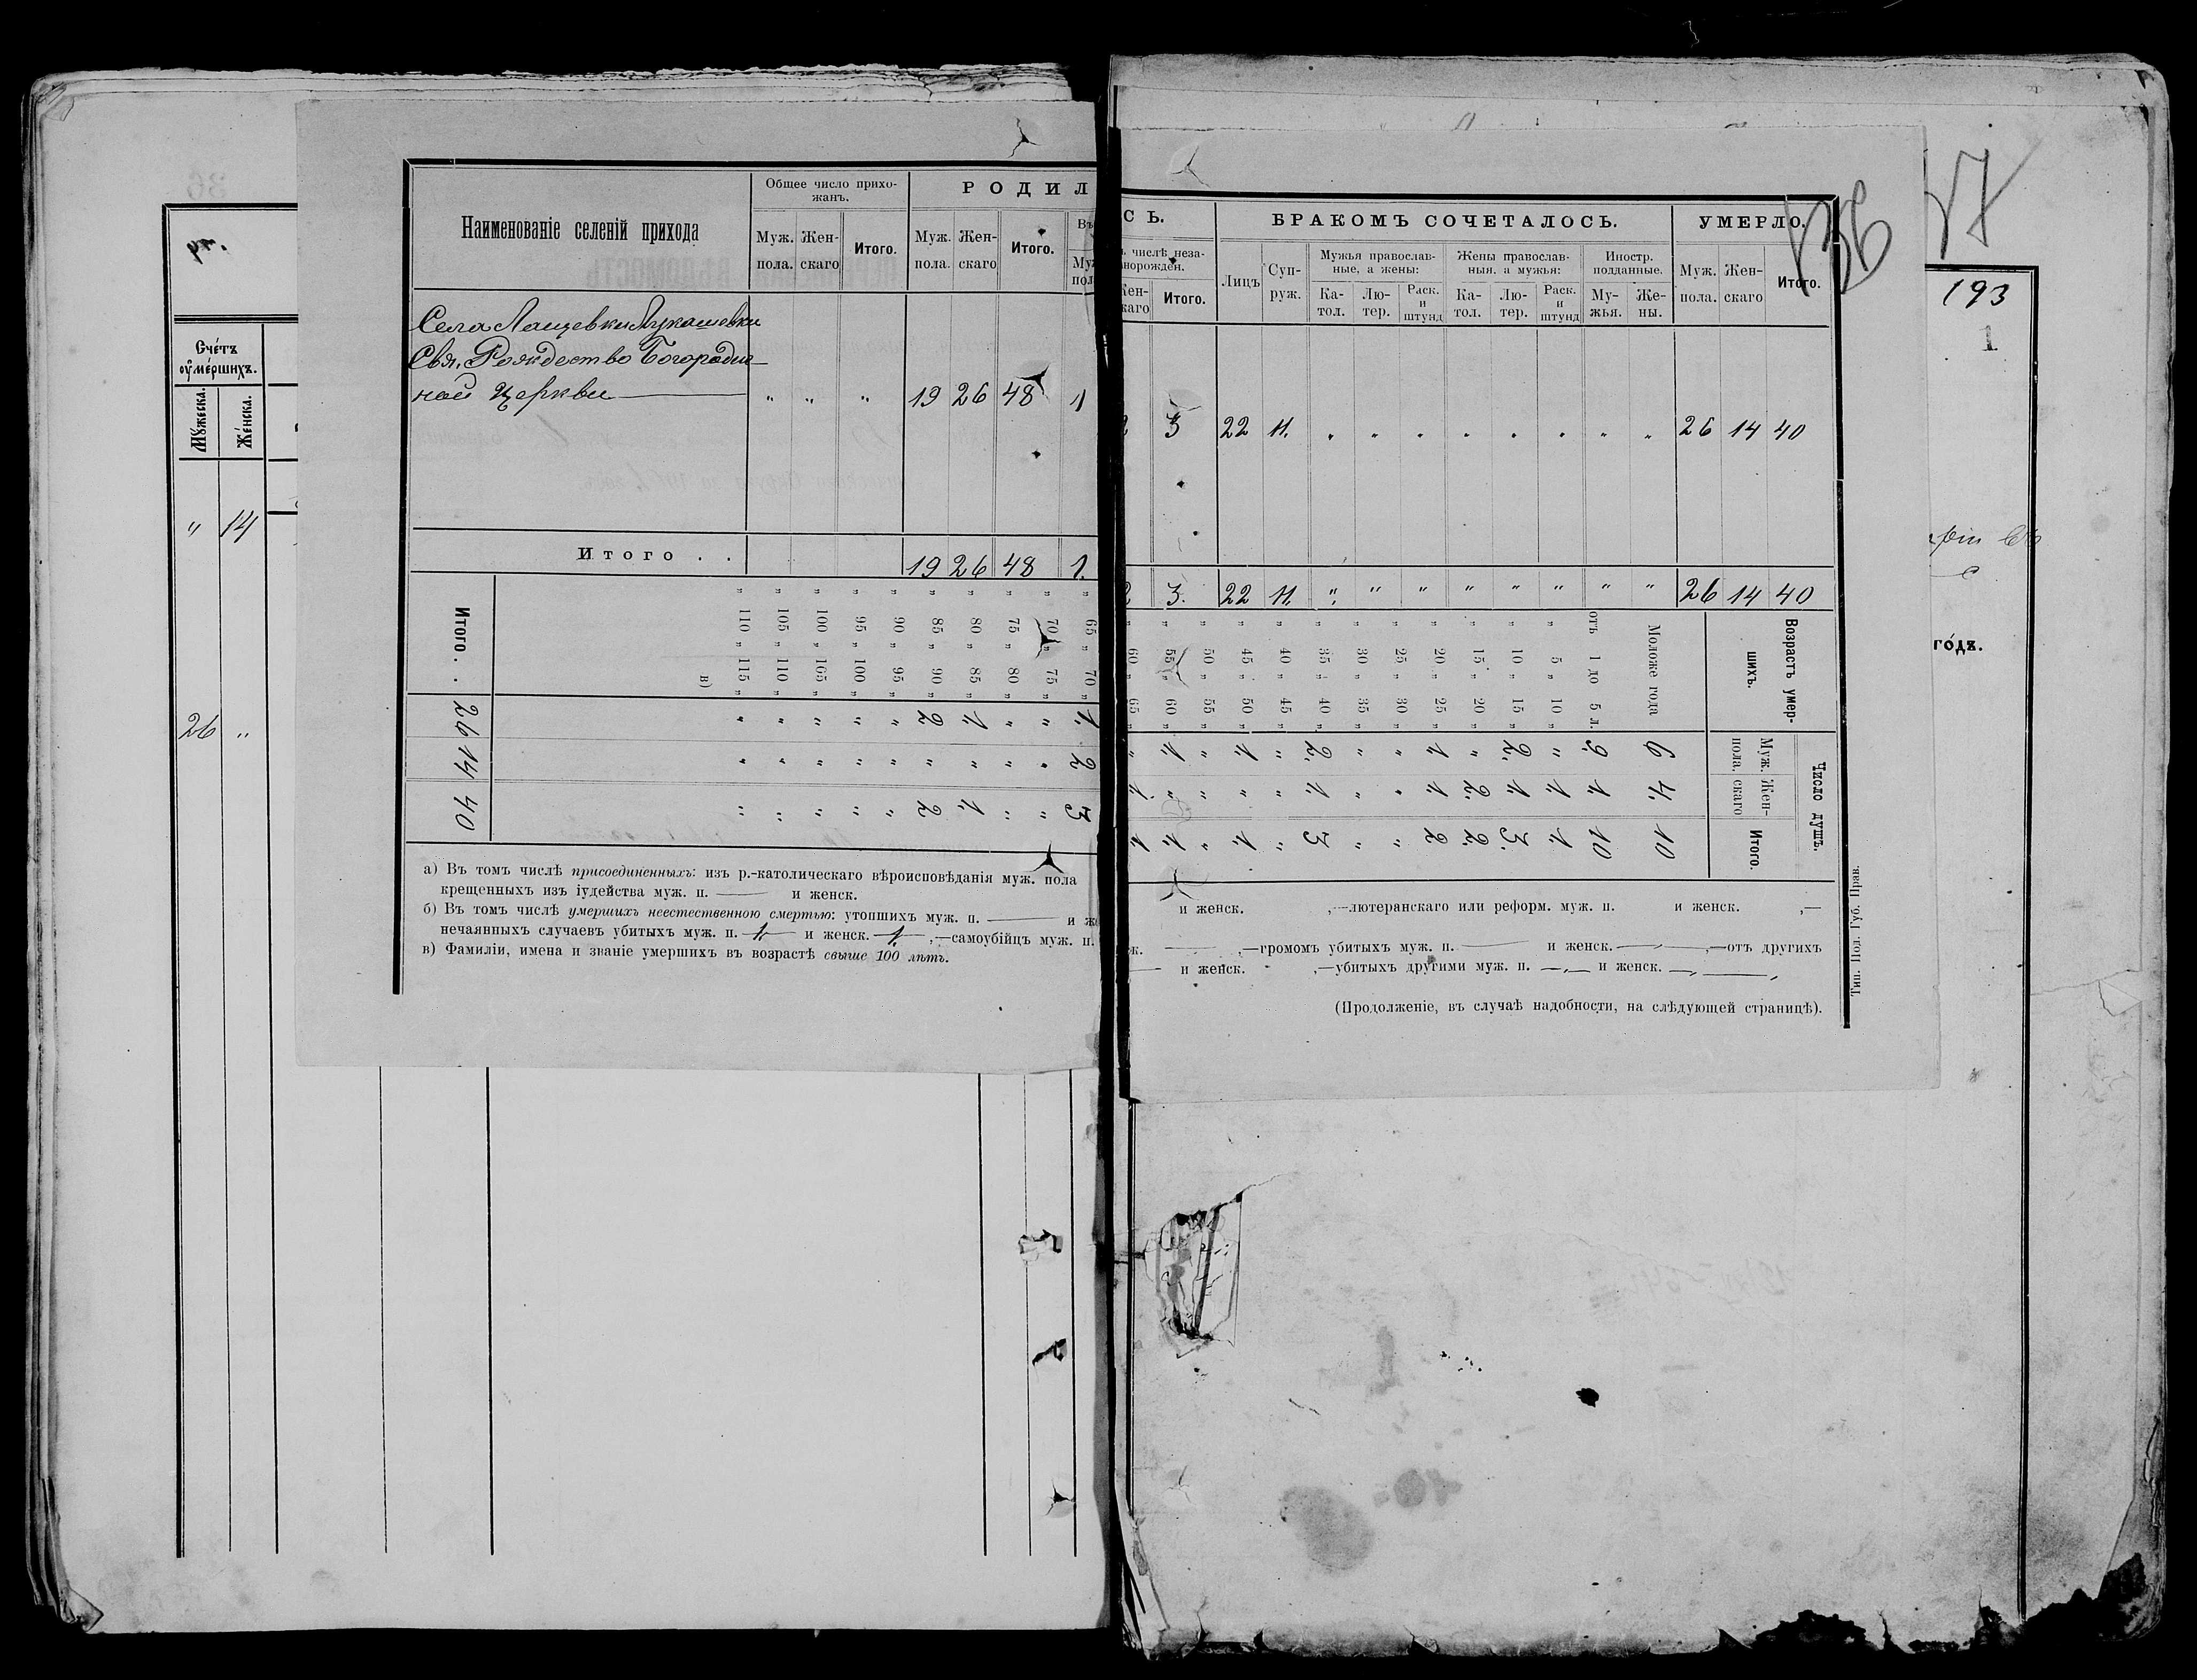 36
193
1
Счéтъ
оумéршихъ.
Мýжеска.
Жéнска.
" 14
26 "
гóдъ.
Наименованіе селеній прихода
Общее число прихо-
жанъ.
Муж. Жен-
пола. скаго
Итого.
РОДИЛ
Муж. Жен-
пола. скаго
Итого.
Въ
Муж
пол
СЬ.
ъ числѣ неза-
норожден.
Жен-
скаго
Итого.
БРАКОМЪ СОЧЕТАЛОСЬ.
Лицъ
Суп-
руж.
Мужья православ-
ные, а жены:
Ка-
тол.
Лю-
тер.
Раск.
и
штунд
Жены православ-
ныя, а мужья:
Ка-
тол.
Лю-
тер.
Раск.
и
штунд
Иностр.
подданные.
Му-
жья.
Же-
ны.
УМЕРЛО.
Муж. Жен-
пола. скаго
Итого.
Села Лащевки Лукашевки
Свя. Рождество Богородич-
ной Церкви " " " 19 26 48 1
2 3 22 11. " " " " " " " " 26 14 40
Итого . . 19 26 48 1.
2 3. 22 11. " " " " " " " " 26 14 40
Возрастъ умер-
шихъ.
Число душъ.
Муж. пола.
Жен- скаго
Итого.
Моложе года 6 4. 10
отъ 1 до 5 л. 9. 1. 10
" 5 " 10 " " 1. 1.
" 10 " 15 " 2. 1. 3.
" 15 " 20 " " 2. 2.
" 20 " 25 " 1. 1. 2
" 25 " 30 " " " "
" 30 " 35 " " " "
" 35 " 40 " 2. 1. 3
" 40 " 45 " " " "
" 45 " 50 " 1. " 1.
" 50 " 55 " " " "
" 55 " 60 " 1. " 1.
" 60 " 65 " " 1. 1
" 65 " 70 " 1. 2 3
" 70 " 75 " " " "
" 75 " 80 " " " "
" 80 " 85 " 1. " 1.
" 85 " 90 " 2 " 2
" 90 " 95 " " " "
" 95 " 100 " " " "
" 100 " 165 " " " "
" 105 " 110 " " " "
" 110 " 115 " " " "
в)
Итого . . 26 14 40
а) Въ томъ числѣ присоединенныхъ: изъ р.-католическаго вѣроисповѣданія муж. пола
и женск. ,—лютеранскаго или реформ. муж. п. и женск. ,—
крещенныхъ изъ іудейства муж. п. — и женск.
б) Въ томъ числѣ умершихъ неестественною смертью: утопшихъ муж. п. — и же
ск. — ,—громомъ убитыхъ муж. п. — и женск. — ,—отъ другихъ
нечаянныхъ случаевъ убитыхъ муж. п. 1. и женск. 1. ,—самоубійцъ муж. п.
— и женск. ,—убитыхъ другими муж. п. —,— и женск. —,—,
в) Фамиліи, имена и званіе умершихъ въ возрастѣ свыше 100 лѣтъ.
(Продолженіе, въ случаѣ надобности, на слѣдующей страницѣ).
Тип. Под. Губ. Прав.